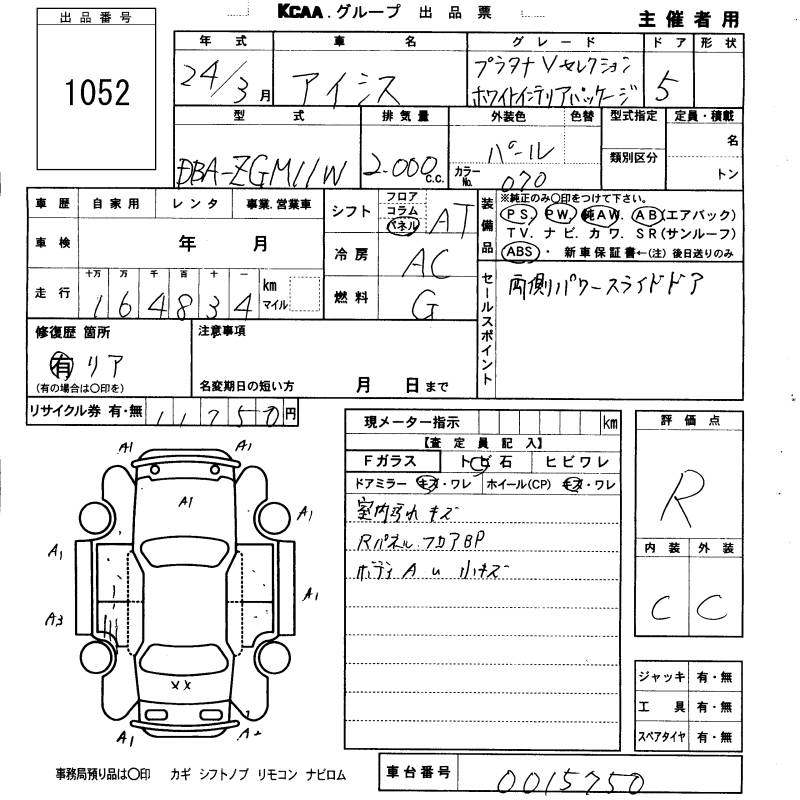 KCAA.グループ 出品票
主催者用
出品番号
1052
年式 車名 グレード ドア 形状
24/3月 アイシス プラタナVセレクション ホワイトインテリアパッケージ 5
型式 排気量 外装色 色替 型式指定 定員・積載
DBA-ZGM11W 2.000c.c. パール 名
類別区分
カラーNo. 070 トン
車歴 自家用 レンタ 事業.営業車
シフト フロア コラム パネル AT
装備品 ※純正のみ○印をつけて下さい。
PS, PW, 純AW. AB(エアバック)
TV. ナビ. カワ. SR(サンルーフ)
ABS・ 新車保証書←(注)後日送りのみ
車検 年 月
冷房 AC
走行 十万 万 千 百 十 一 km マイル
164834
燃料 G
セールスポイント
両側パワースライドドア
修復歴 箇所
有 リア
(有の場合は○印を)
注意事項
名変期日の短い方 月 日まで
リサイクル券 有・無 11750円
現メーター指示 km
【査定員記入】
Fガラス トビ石 ヒビワレ
ドアミラー キズ・ワレ ホイール(CP) キズ・ワレ
室内汚れ キズ
Rパネル フロアBP
ボディ A u 小キズ
評価点
R
内装 外装
C C
A1 A1
A1
A1 A1
A1 A1
A3
XX
A1
ジャッキ 有・無
工具 有・無
スペアタイヤ 有・無
事務局預り品は○印 カギ シフトノブ リモコン ナビロム
車台番号 0015750